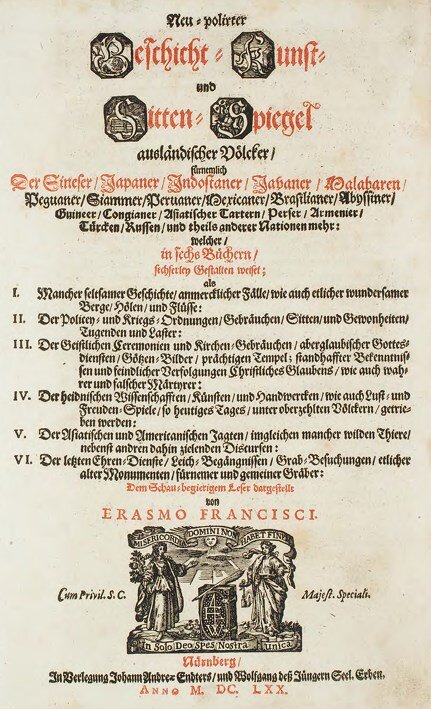 Neu-polirter
Geschicht- Kunst-
und
Sitten-Spiegel
ausländischer Völcker/
fürnemlich
Der Sineser/Japaner/Indostaner/Javaner/Malabaren/
Peguaner/Siammer/Peruaner/Mexicaner/Brasilianer/Abyssiner/
Guineer/Congianer/Asiatischer Tartern/Perser/Armenier/
Türcken/Russen/und theils anderer Nationen mehr:
welcher/
in sechs Büchern/
sechserley Gestalten weiset;
als
I. Mancher seltsamer Geschichte/anmercklicher Fälle/wie auch etlicher wundersamer
Berge/Hölen/und Flüsse:
II. Der Policey- und Kriegs-Ordnungen/Gebräuchen/Sitten/und Gewonheiten/
Tugenden und Laster:
III. Der Geistlichen Ceremonien und Kirchen-Gebräuchen/aberglaubischer Gottes-
diensten/Götzen-Bilder/prächtigen Tempel; standhaffter Bekenntnis-
sen und feindlicher Verfolgungen Christliches Glaubens/wie auch wah-
rer und falscher Märtyrer:
IV. Der heidnischen Wissenschafften/Künsten/und Handwercken/wie auch Lust- und
Freuden-Spiele/so heutiges Tages/unter oberzehlten Völckern/getrie-
ben werden:
V. Der Asiatischen und Americanischen Jagten/imgleichen mancher wilden Thiere/
nebenst andren dahin zielenden Discursen:
VI. Der letzten Ehren-Dienste/Leich-Begängnissen/Grab-Besuchungen/etlicher
alter Monumenten/fürnemer und gemeiner Gräber:
Dem Schau-begierigem Leser dargestellt
von
ERASMO FRANCISCI.
MISERICORDIA DOMINI NON HABET FINEM
Cum Privil. S. C. Majest. Speciali.
In Solo Deo Spes Nostra unica
Nürnberg/
In Verlegung Johann Andreæ Endters/und Wolfgang deß Jüngern Seel. Erben.
ANNO M. DC. LXX.